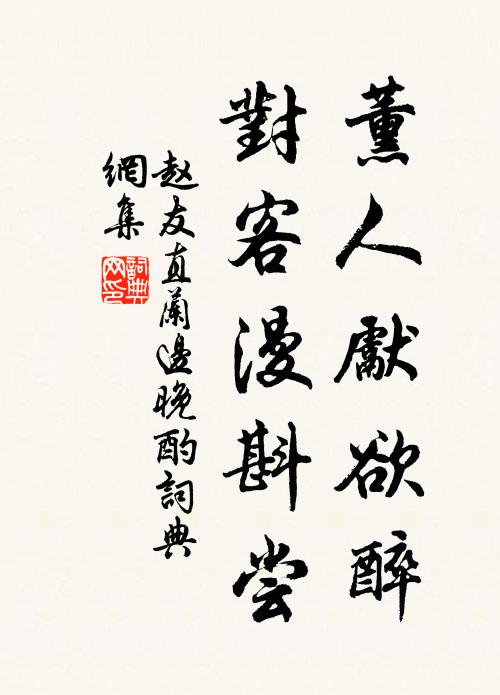 薰人獻欲醉
對客漫斟尝
赵友直蘭邊晚酌詞典
網集
詞典
网印